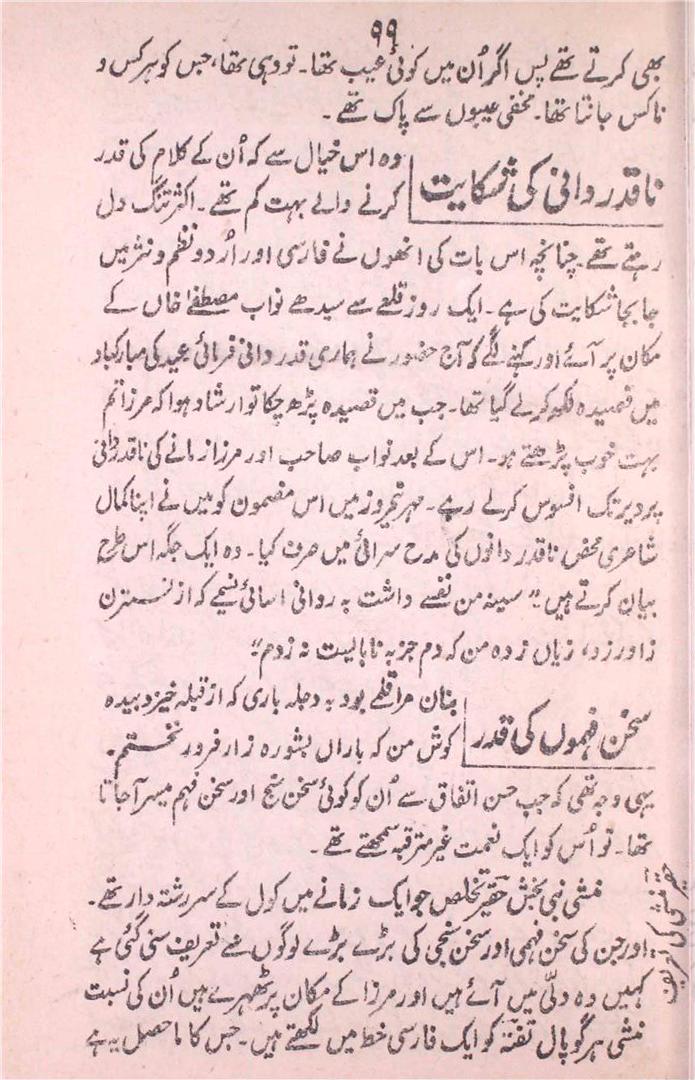 ۹۹
بھی کرتے تھے پس اگر اُن میں کوئی عیب تھا۔ تو وہی تھا، جس کو ہر کس و
ناکس جانتا تھا۔ مخفی عیبوں سے پاک تھے۔
ناقدردانی کی شکایت
وہ اس خیال سے کہ اُن کے کلام کی قدر
کرنے والے بہت کم تھے۔ اکثر تنگ دل
رہتے تھے۔ چنانچہ اس بات کی انھوں نے فارسی اور اُردو نظم و نثر میں
جابجا شکایت کی ہے۔ ایک روز قلعے سے سیدھے نواب مصطفےٰ خاں کے
مکان پر آئے اور کہنے لگے کہ آج حضور نے ہماری قدردانی فرمائی عید کی مبارکباد
میں قصیدہ لکھ کر لے گیا تھا۔ جب میں قصیدہ پڑھ چکا تو ارشاد ہوا کہ مرزا تم
بہت خوب پڑھتے ہو۔ اس کے بعد نواب صاحب اور مرزا زمانے کی ناقدردانی
پر دیر تک افسوس کرتے رہے۔ مہر نیمروز میں اس مضمون کو میں نے اپنا کمال
شاعری محض ناقدردانوں کی مدح سرائی میں صرف کیا۔ وہ ایک جگہ اس طرح
بیان کرتے ہیں۔" سینہ من نفسے داشت بہ روانی اسائی نسیمے کہ از نسترن
زاورزد، زیاں زدہ من کہ دم جز بہ نابالیست نہ زدم"
سخن فہموں کی قدر
بنان مرا قلمے بود بہ دجلہ باری کہ از قبلہ خیزد بیدہ
کوش من کہ باراں بشورہ زار فرور نختستم۔
یہی وجہ تھی کہ جب حسن اتفاق سے اُن کو کوئی سخن سنج اور سخن فہم میسر آجاتا
تھا۔ تو اُس کو ایک نعمت غیر مترقبہ سمجھتے تھے۔
منشی نبی بخش حقیر تخلص جو ایک زمانے میں کول کے سررشتہ دار تھے۔
اور جن کی سخن فہمی اور سخن سنجی کی بڑے بڑے لوگوں سے تعریف سنی گئی ہے
کہیں وہ دلّی میں آئے ہیں اور مرزا کے مکان پر ٹھہرے ہیں اُن کی نسبت
منشی ہرگوپال تفتہ کو ایک فارسی خط میں لکھتے ہیں۔ جس کا ماحصل یہ ہے
حقیر منشی کی تعریف